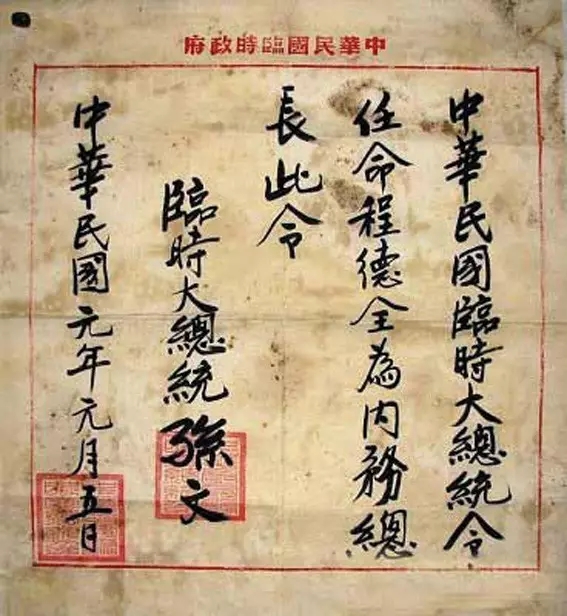 中華民國臨時政府
中華民國臨時大總統令
任命程德全為内務總
長此令
臨時大總統孫文
中華民國元年元月五日